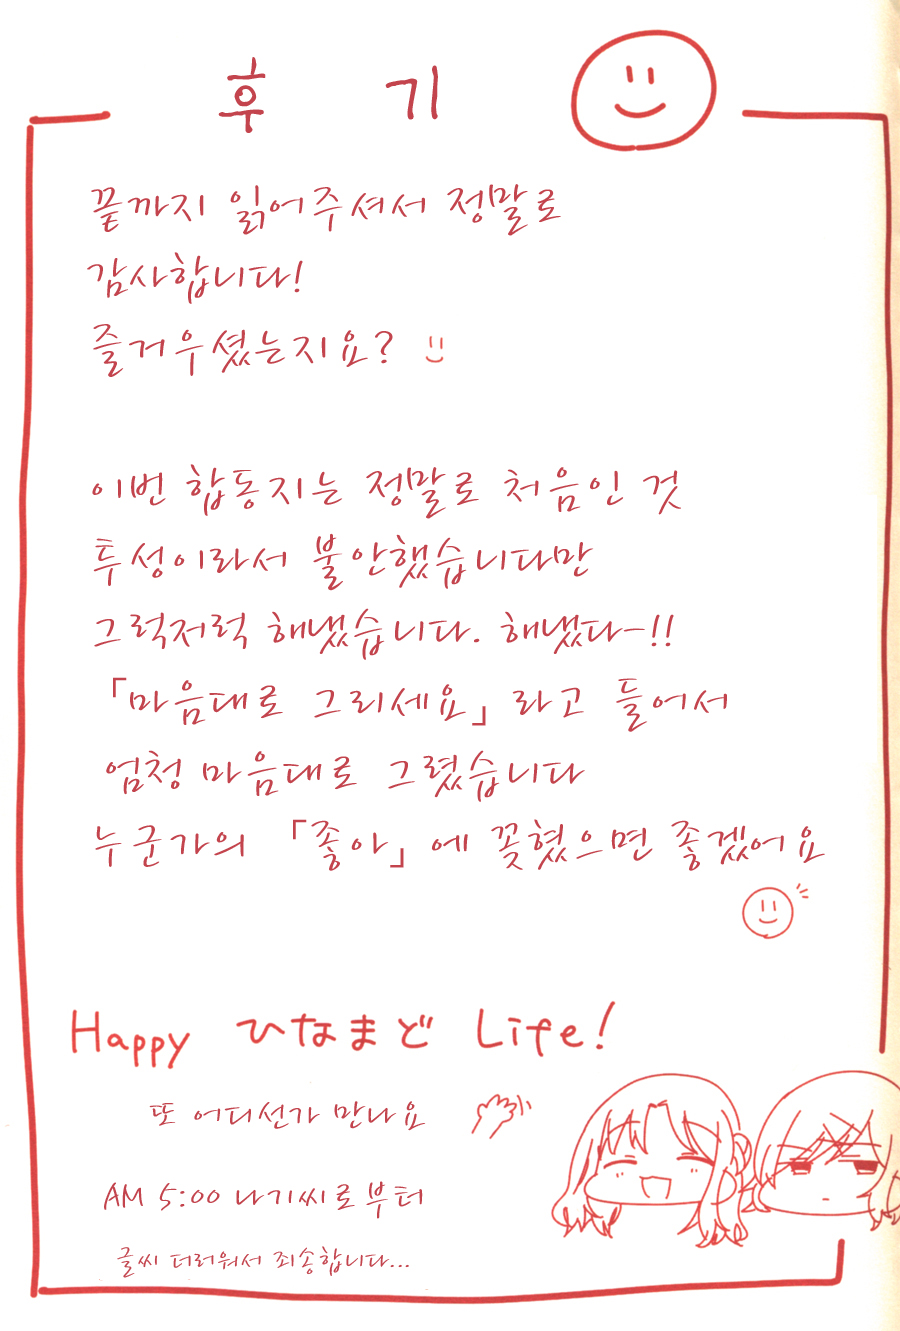 후 기
끝까지 읽어주셔서 정말로
감사합니다!
즐거우셨는지요?
이번 합동지는 정말로 처음인 것
투성이라서 불안했습니다만
그럭저럭 해냈습니다. 해냈다-!!
「마음대로 그리세요」라고 들어서
엄청 마음대로 그렸습니다
누군가의 「좋아」에 꽂혔으면 좋겠어요
Happy ひなまど Life!
또 어디선가 만나요
AM 5:00 나기씨로부터
글씨 더러워서 죄송합니다...